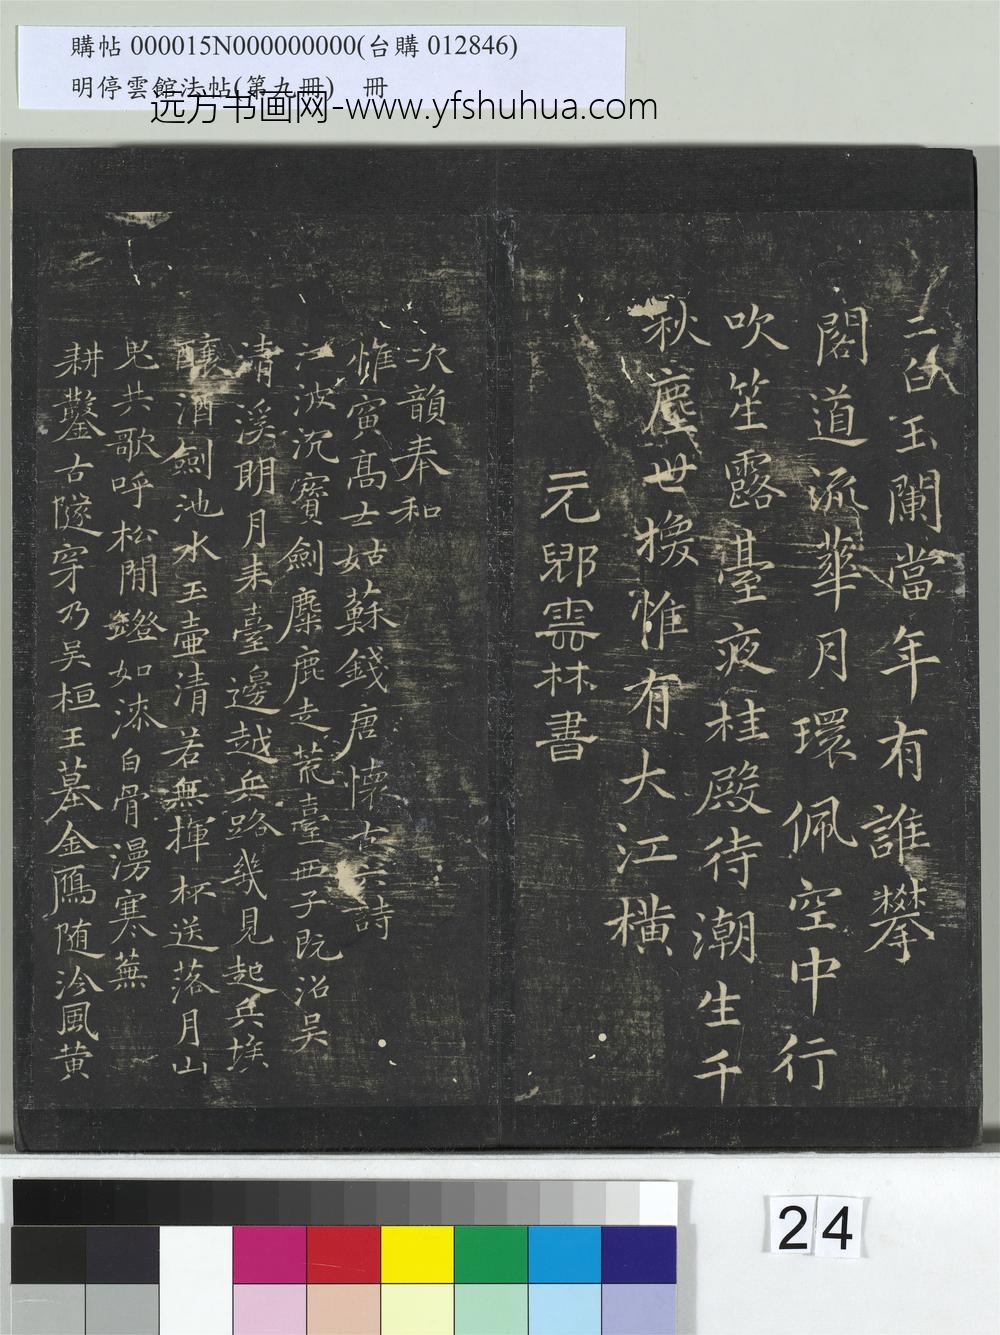 購帖 000015N000000000(台購 012846)
明停雲館法帖(第九冊) 冊
远方书画网-www.yfshuhua.com
二白玉闌當年有誰攀
閣道流華月環佩空中行
吹笙露臺夜桂殿待潮生千
秋塵世換惟有大江橫
元鄉雲林書
次韻奉和
惟寅高士姑蘇錢唐懷古六詩
江波沉寳劍麋鹿走荒臺西子既沼吴
清溪明月来臺邊越兵路幾見起兵埃
釀酒劍池水玉壷清若無揮杯送落月山
鬼共歌呼松間鐙如漆白骨漫寒蕪
耕鑿古隧穿乃吴桓王墓金鴈随泠風黄
24